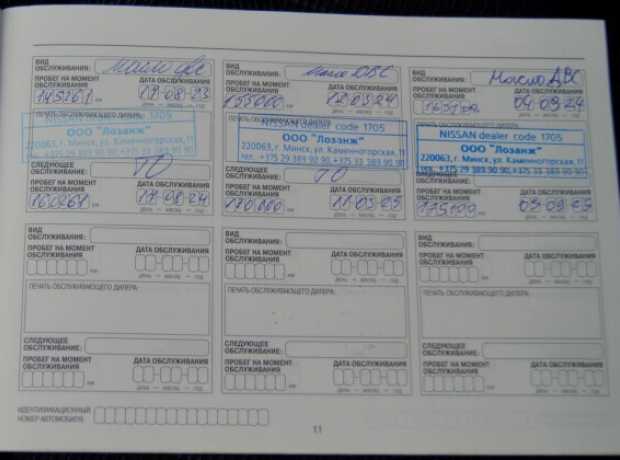 ВИД ОБСЛУЖИВАНИЯ: Масло двс
ПРОБЕГ НА МОМЕНТ ОБСЛУЖИВАНИЯ ДАТА ОБСЛУЖИВАНИЯ
145261 км 18-08-23
ДЕНЬ – МЕСЯЦ – ГОД
ПЕЧАТЬ ОБСЛУЖИВАЮЩЕГО ДИЛЕРА:
NISSAN dealer code 1705
ООО "Лозанж"
220063, г. Минск, ул. Каменногорская, 11
тел. +375 29 389 90 90, +375 33 389 90 90
СЛЕДУЮЩЕЕ ОБСЛУЖИВАНИЕ: ТО
ПРОБЕГ НА МОМЕНТ ОБСЛУЖИВАНИЯ ДАТА ОБСЛУЖИВАНИЯ
160261 км 17-08-24
ДЕНЬ – МЕСЯЦ – ГОД
ВИД ОБСЛУЖИВАНИЯ: Масло ДВС
ПРОБЕГ НА МОМЕНТ ОБСЛУЖИВАНИЯ ДАТА ОБСЛУЖИВАНИЯ
155000 км 12-03-24
ПЕЧАТЬ ОБСЛУЖИВАЮЩЕГО ДИЛЕРА:
NISSAN dealer code 1705
ООО "Лозанж"
220063, г. Минск, ул. Каменногорская, 11
тел. +375 29 389 90 90, +375 33 389 90 90
СЛЕДУЮЩЕЕ ОБСЛУЖИВАНИЕ: ТО
ПРОБЕГ НА МОМЕНТ ОБСЛУЖИВАНИЯ ДАТА ОБСЛУЖИВАНИЯ
170000 км 11-03-25
ДЕНЬ – МЕСЯЦ – ГОД
ВИД ОБСЛУЖИВАНИЯ: Масло ДВС
ПРОБЕГ НА МОМЕНТ ОБСЛУЖИВАНИЯ ДАТА ОБСЛУЖИВАНИЯ
04-09-24
NISSAN dealer code 1705
ООО "Лозанж"
220063, г. Минск, ул. Каменногорская, 11
тел. +375 29 389 90 90, +375 33 389 90 90
ОБСЛУЖИВАНИЕ:
ПРОБЕГ НА МОМЕНТ ОБСЛУЖИВАНИЯ ДАТА ОБСЛУЖИВАНИЯ
03-09-25
ДЕНЬ – МЕСЯЦ – ГОД
ВИД ОБСЛУЖИВАНИЯ:
ПРОБЕГ НА МОМЕНТ ОБСЛУЖИВАНИЯ ДАТА ОБСЛУЖИВАНИЯ
км ДЕНЬ – МЕСЯЦ – ГОД
ПЕЧАТЬ ОБСЛУЖИВАЮЩЕГО ДИЛЕРА:
СЛЕДУЮЩЕЕ ОБСЛУЖИВАНИЕ:
ПРОБЕГ НА МОМЕНТ ОБСЛУЖИВАНИЯ ДАТА ОБСЛУЖИВАНИЯ
км ДЕНЬ – МЕСЯЦ – ГОД
ВИД ОБСЛУЖИВАНИЯ:
ПРОБЕГ НА МОМЕНТ ОБСЛУЖИВАНИЯ ДАТА ОБСЛУЖИВАНИЯ
км ДЕНЬ – МЕСЯЦ – ГОД
ПЕЧАТЬ ОБСЛУЖИВАЮЩЕГО ДИЛЕРА:
СЛЕДУЮЩЕЕ ОБСЛУЖИВАНИЕ:
ПРОБЕГ НА МОМЕНТ ОБСЛУЖИВАНИЯ ДАТА ОБСЛУЖИВАНИЯ
км ДЕНЬ – МЕСЯЦ – ГОД
ВИД ОБСЛУЖИВАНИЯ:
ПРОБЕГ НА МОМЕНТ ОБСЛУЖИВАНИЯ ДАТА ОБСЛУЖИВАНИЯ
км ДЕНЬ – МЕСЯЦ – ГОД
ПЕЧАТЬ ОБСЛУЖИВАЮЩЕГО ДИЛЕРА:
СЛЕДУЮЩЕЕ ОБСЛУЖИВАНИЕ:
ПРОБЕГ НА МОМЕНТ ОБСЛУЖИВАНИЯ ДАТА ОБСЛУЖИВАНИЯ
км ДЕНЬ – МЕСЯЦ – ГОД
ИДЕНТИФИКАЦИОННЫЙ
НОМЕР АВТОМОБИЛЯ:
11